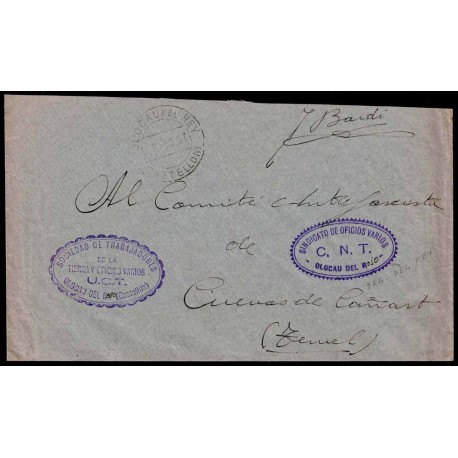 OLOCAU DEL REY
(CASTELLON)
J Bardi
Al Comité Antifascista
de
Cuevas de Cañart
(Teruel)
SOCIEDAD DE TRABAJADORES
DE LA
TIERRA Y OFICIOS VARIOS
U.G.T.
OLOCAU DEL (Castellón)
SINDICATO DE OFICIOS VARIOS
C. N. T.
OLOCAU DEL
DEL REY